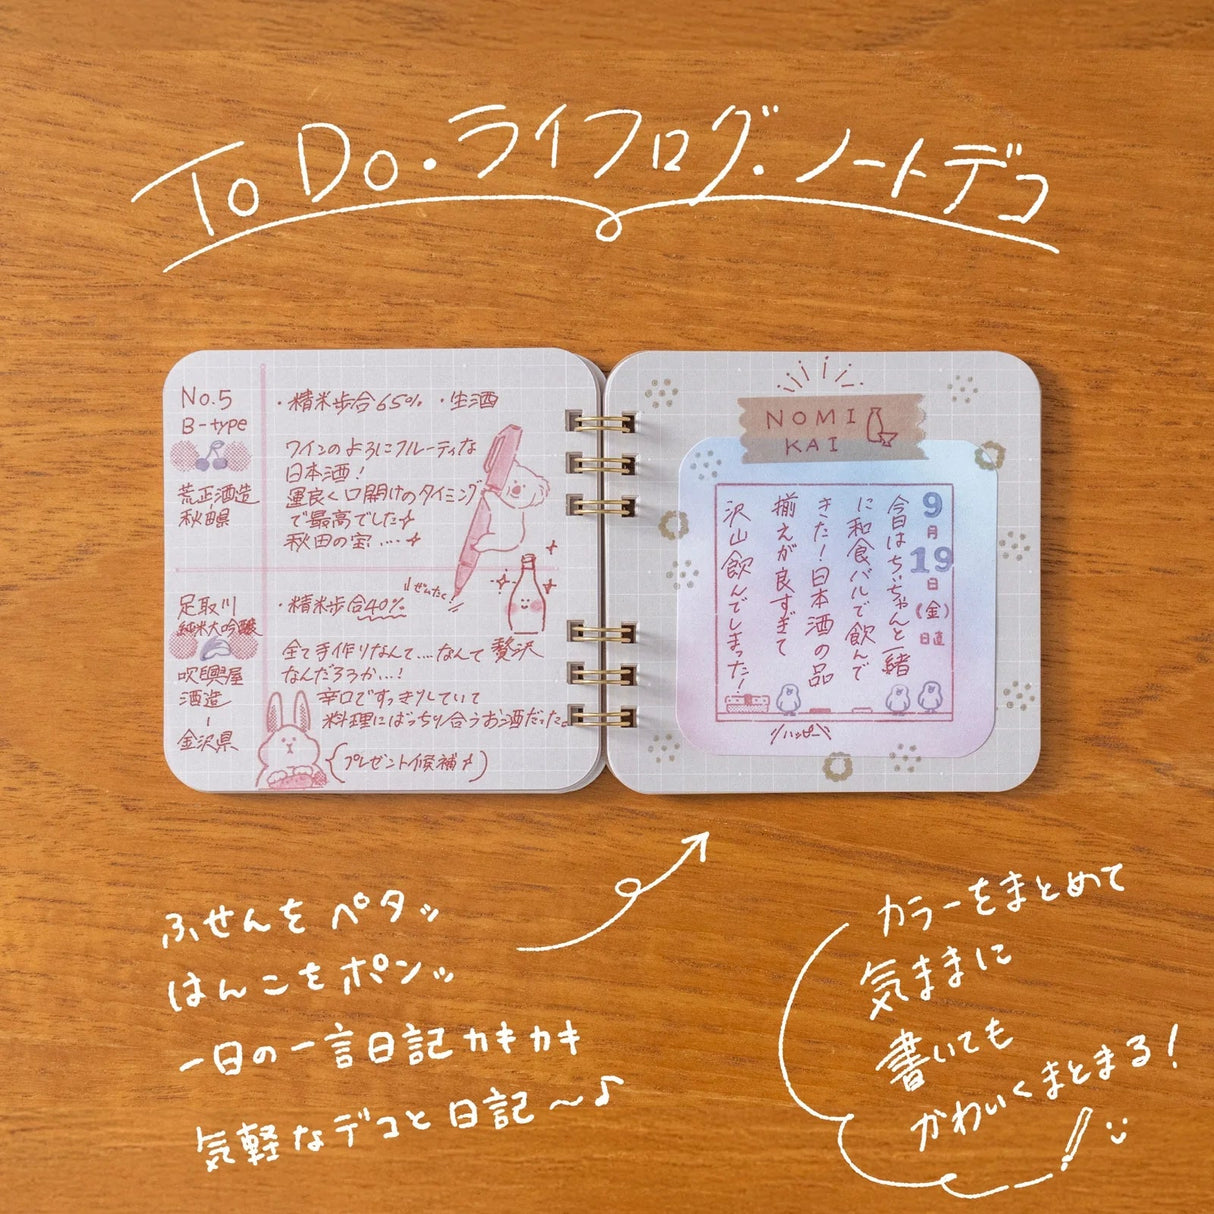 To Do・ライフログ・ノートデコ
No.5
B-type
荒正酒造
秋田県
・精米歩合65% ・生酒
ワインのようにフルーティな
日本酒!
運良く口開けのタイミング
で最高でした
秋田の宝…
足取川
純米大吟醸
吹興屋
酒造
金沢県
・精米歩合40%
ぜいたく!
贅沢
全て手作りなんて…なんて
なんだろうか…!
辛口ですっきりしていて
料理にばっちり合うお酒だった。
プレゼント候補
NOMI
KAI
9
月
19
日
(金)
日直
今日はちぃちゃんと一緒
に和食バルで飲んで
きた!日本酒の品
揃えが良すぎて
沢山飲んでしまった!
ハッピー
ふせんをペタッ
はんこをポンッ
一日の一言日記カキカキ
気軽なデコと日記〜♪
カラーをまとめて
気ままに
書いても
かわいくまとまる!